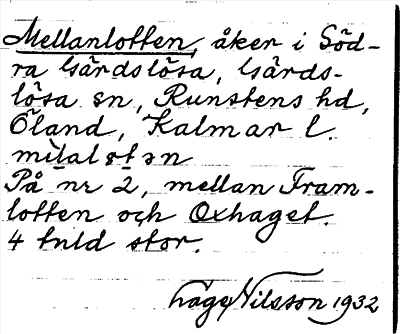 Mellanlotten, åker i Söd-
ra Gärdslösa, Gärds-
lösa sn, Runstens hd,
Öland, Kalmar l.
mìlalotən
På nr 2, mellan Fram-
lotten och Oxhaget.
4 tnld stor.
Nilsson 1932